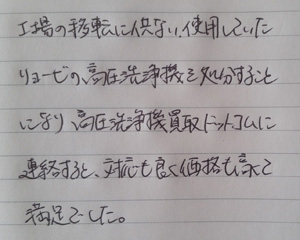 工場の移転に伴ない、使用していた
リョービの、高圧洗浄機を処分すること
になり、高圧洗浄機買取ドットコムに
連絡すると、対応も良く価格も高くて
満足でした。